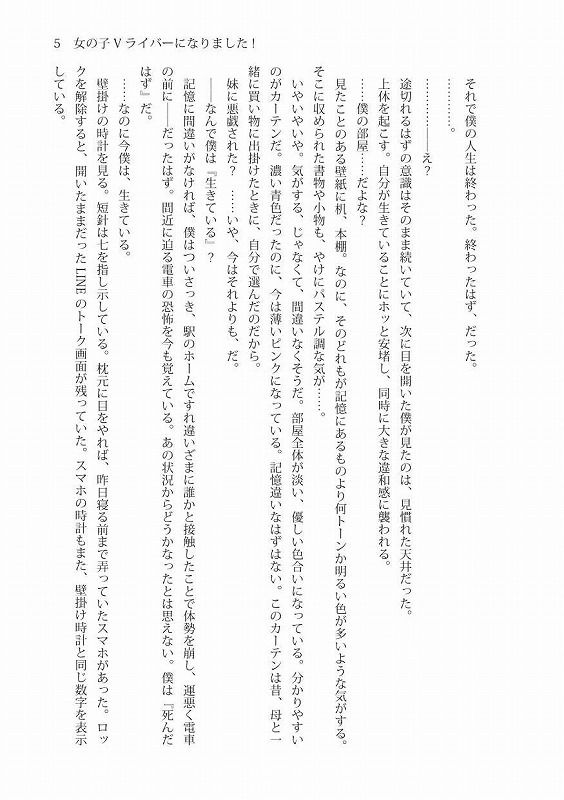 5　女の子Vライバーになりました！
それで僕の人生は終わった。終わったはず、だった。
…………。
…………――え？
途切れるはずの意識はそのまま続いていて、次に目を開いた僕が見たのは、見慣れた天井だった。
上体を起こす。自分が生きていることにホッと安堵し、同時に大きな違和感に襲われる。
……僕の部屋……だよな？
見たことのある壁紙に机、本棚。なのに、そのどれもが記憶にあるものより何トーンか明るい色が多いような気がする。
そこに収められた書物や小物も、やけにパステル調な気が……。
いやいやいや。気がする、じゃなくて、間違いなくそうだ。部屋全体が淡い、優しい色合いになっている。分かりやすい
のがカーテンだ。濃い青色だったのに、今は薄いピンクになっている。記憶違いなはずはない。このカーテンは昔、母と一
緒に買い物に出掛けたときに、自分で選んだのだから。
妹に悪戯された？　……いや、今はそれよりも、だ。
――なんで僕は『生きている』？
記憶に間違いがなければ、僕はついさっき、駅のホームですれ違いざまに誰かと接触したことで体勢を崩し、運悪く電車
の前に――だったはず。間近に迫る電車の恐怖を今も覚えている。あの状況からどうかなったとは思えない。僕は『死んだ
はず』だ。
……なのに今僕は、生きている。
壁掛けの時計を見る。短針は七を指し示している。枕元に目をやれば、昨日寝る前まで弄っていたスマホがあった。ロッ
クを解除すると、開いたままだったLINEのトーク画面が残っていた。スマホの時計もまた、壁掛け時計と同じ数字を表示
している。